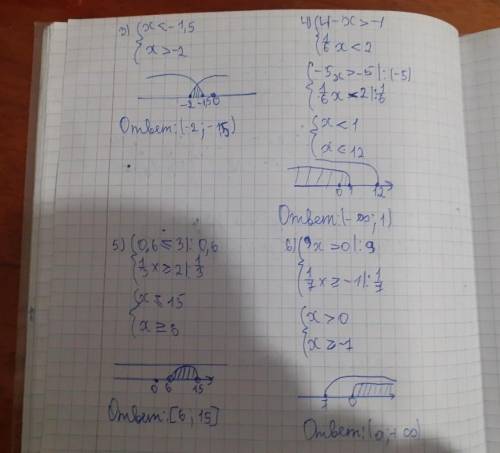 3) { x < -1,5
x > -2
-2 -1,5 0
Ответ: (-2; -1,5)
4) { 4-x > -1
1/6 x < 2
{ -5x > -5 |: (-5)
1/6 x < 2 |: 1/6
{ x < 1
x < 12
0 1 12
Ответ: (-∞; 1)
5) { 0,6 ≤ 3 |: 0,6
1/3 x ≥ 2 |: 1/3
{ x ≤ 15
x ≥ 6
0 6 15
Ответ: [6; 15]
6) { 9x > 0 |: 9
1/7 x ≥ -1 |: 1/7
{ x > 0
x ≥ -7
0
Ответ: (0; +∞)